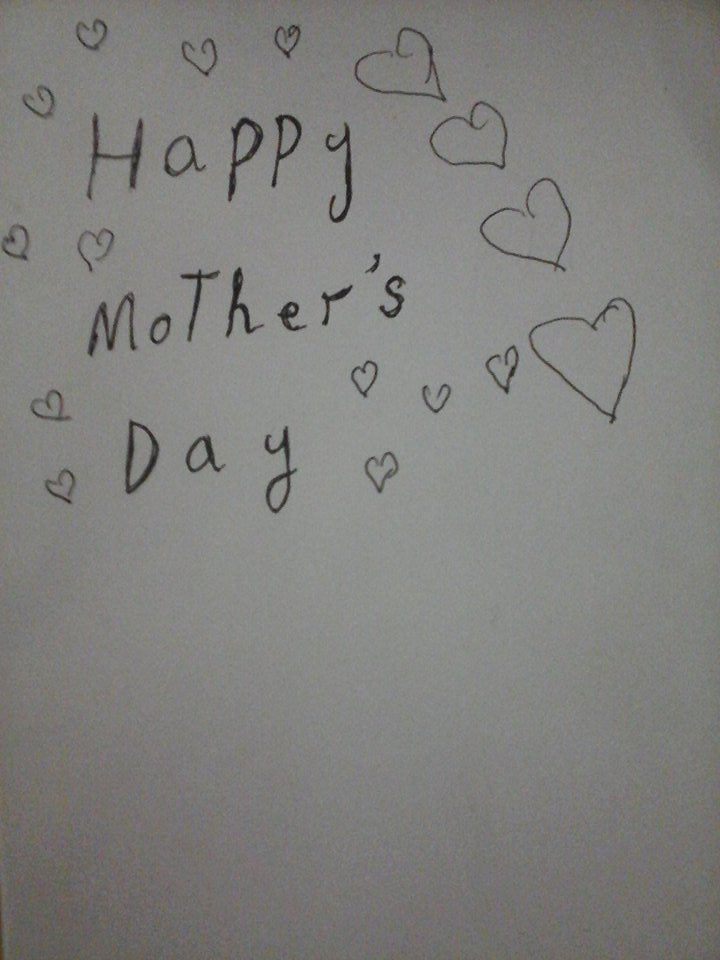 Happy
Mother's
Day